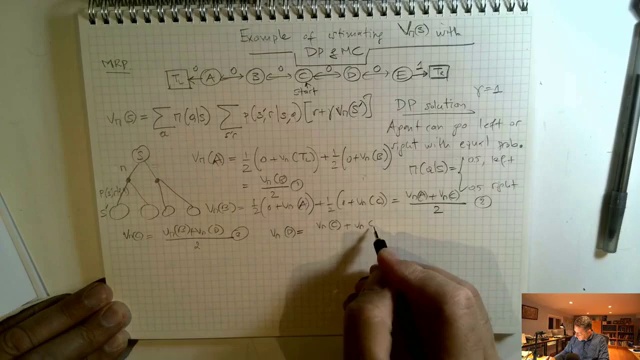 Example of estimating Vπ(s) with
DP & MC
MRP
TL ←0 A ←0→ B ←0→ C ←0→ D ←0→ E 1→ TR
start
Vπ(s) = Σa π(a|s) Σs',r p(s',r|s,a) [r+γVπ(s')]
DP solution γ=1
Agent can go left or
right with equal prob.
π(a|s) = { 0.5, left
0.5 right
S
π
S'
Vπ(A) = 1/2 (0+Vπ(TL)) + 1/2 (0+Vπ(B))
= Vπ(B)/2 ①
Vπ(B) = 1/2 (0+Vπ(A)) + 1/2 (0+Vπ(C)) = (Vπ(A)+Vπ(C))/2 ②
Vπ(C) = (Vπ(B)+Vπ(D))/2 ③
Vπ(D) = Vπ(C) + Vπ(